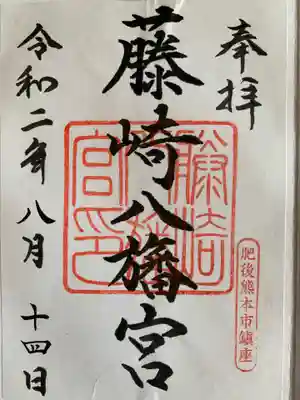 奉拝
藤崎八旛宮
令和二年八月 十四日
藤崎八旛宮印
肥後熊本市鎮座